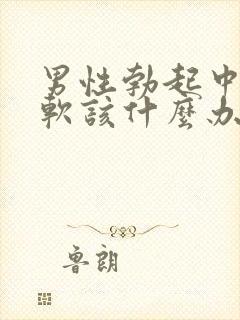 男性勃起中
軟該什麼办
魯朗